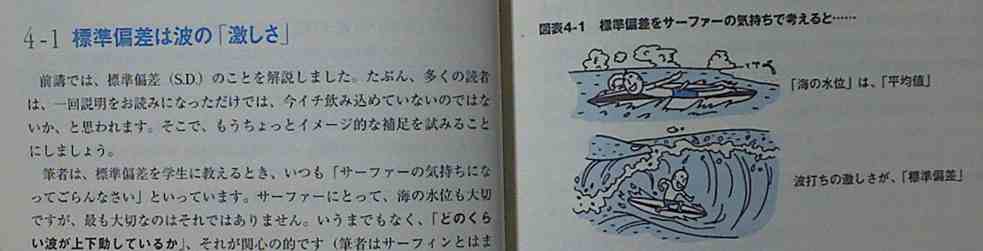 4-1 標準偏差は波の「激しさ」
前講では、標準偏差（S.D.）のことを解説しました。たぶん、多くの読者
は、一回説明をお読みになっただけでは、今イチ飲み込めていないのではな
いか、と思われます。そこで、もうちょっとイメージ的な補足を試みること
にしましょう。
筆者は、標準偏差を学生に教えるとき、いつも「サーファーの気持ちになっ
てごらんなさい」といっています。サーファーにとって、海の水位も大切
ですが、最も大切なのはそれではありません。いうまでもなく、「どのくら
い波が上下動しているか」、それが関心の的です（筆者はサーフィンとはま
図表4-1 標準偏差をサーファーの気持ちで考えると……
「海の水位」は、「平均値」
波打ちの激しさが、「標準偏差」